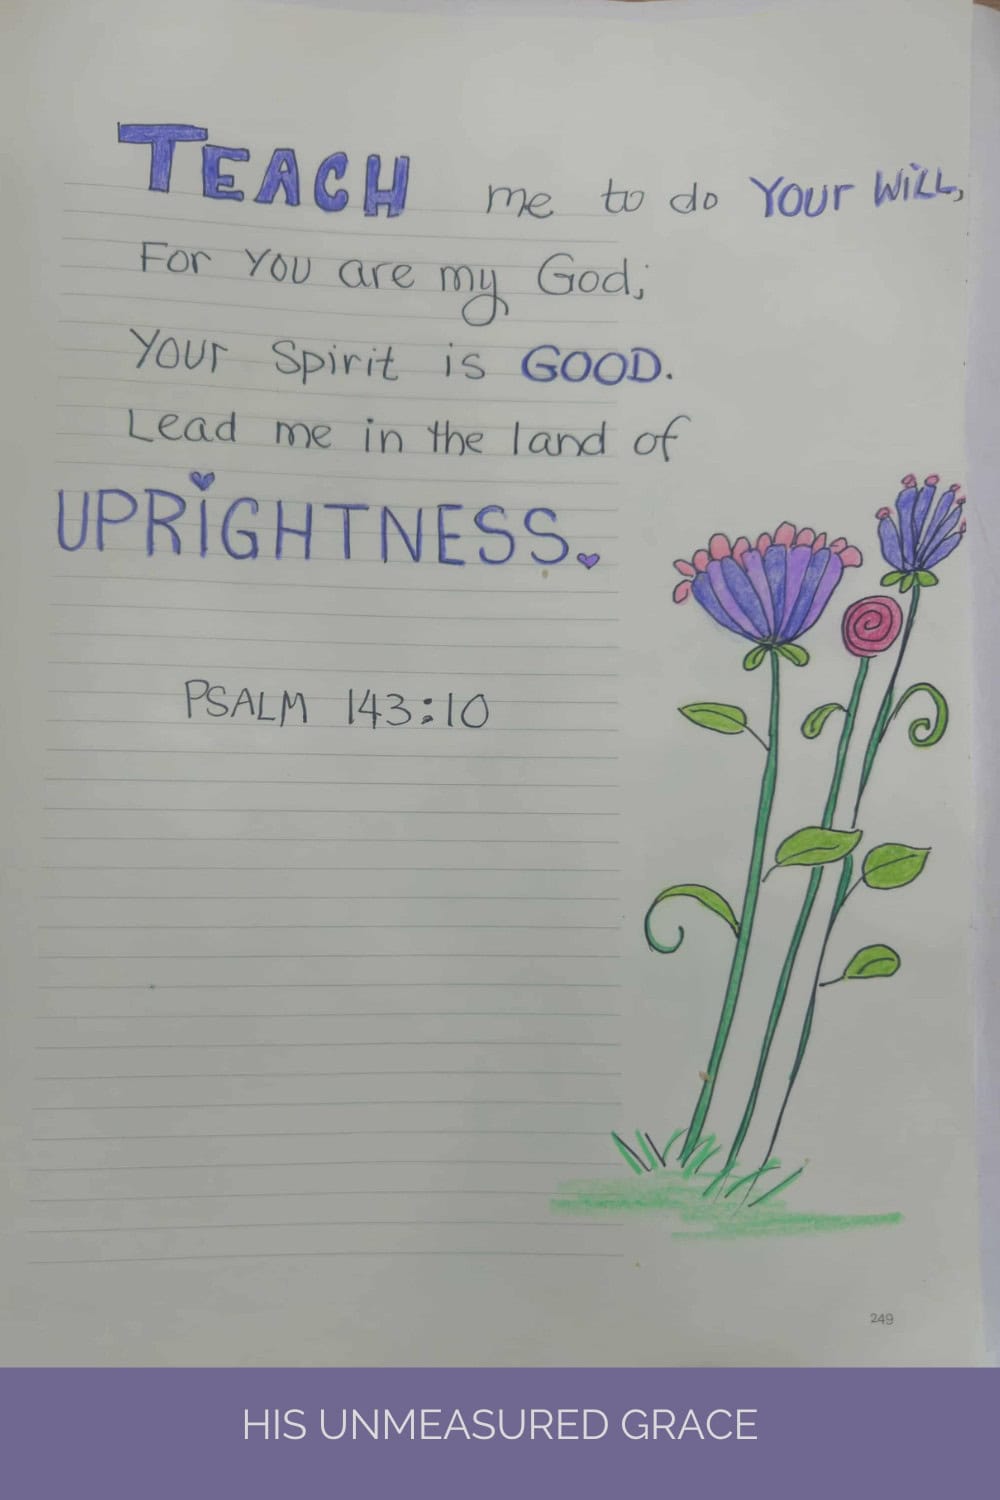 TEACH me to do YOUR WiLL,
For YOU are my God;
YOUR Spirit is GOOD.
Lead me in the land of
UPRiGHTNESS.
PSALM 143:10
249
HIS UNMEASURED GRACE